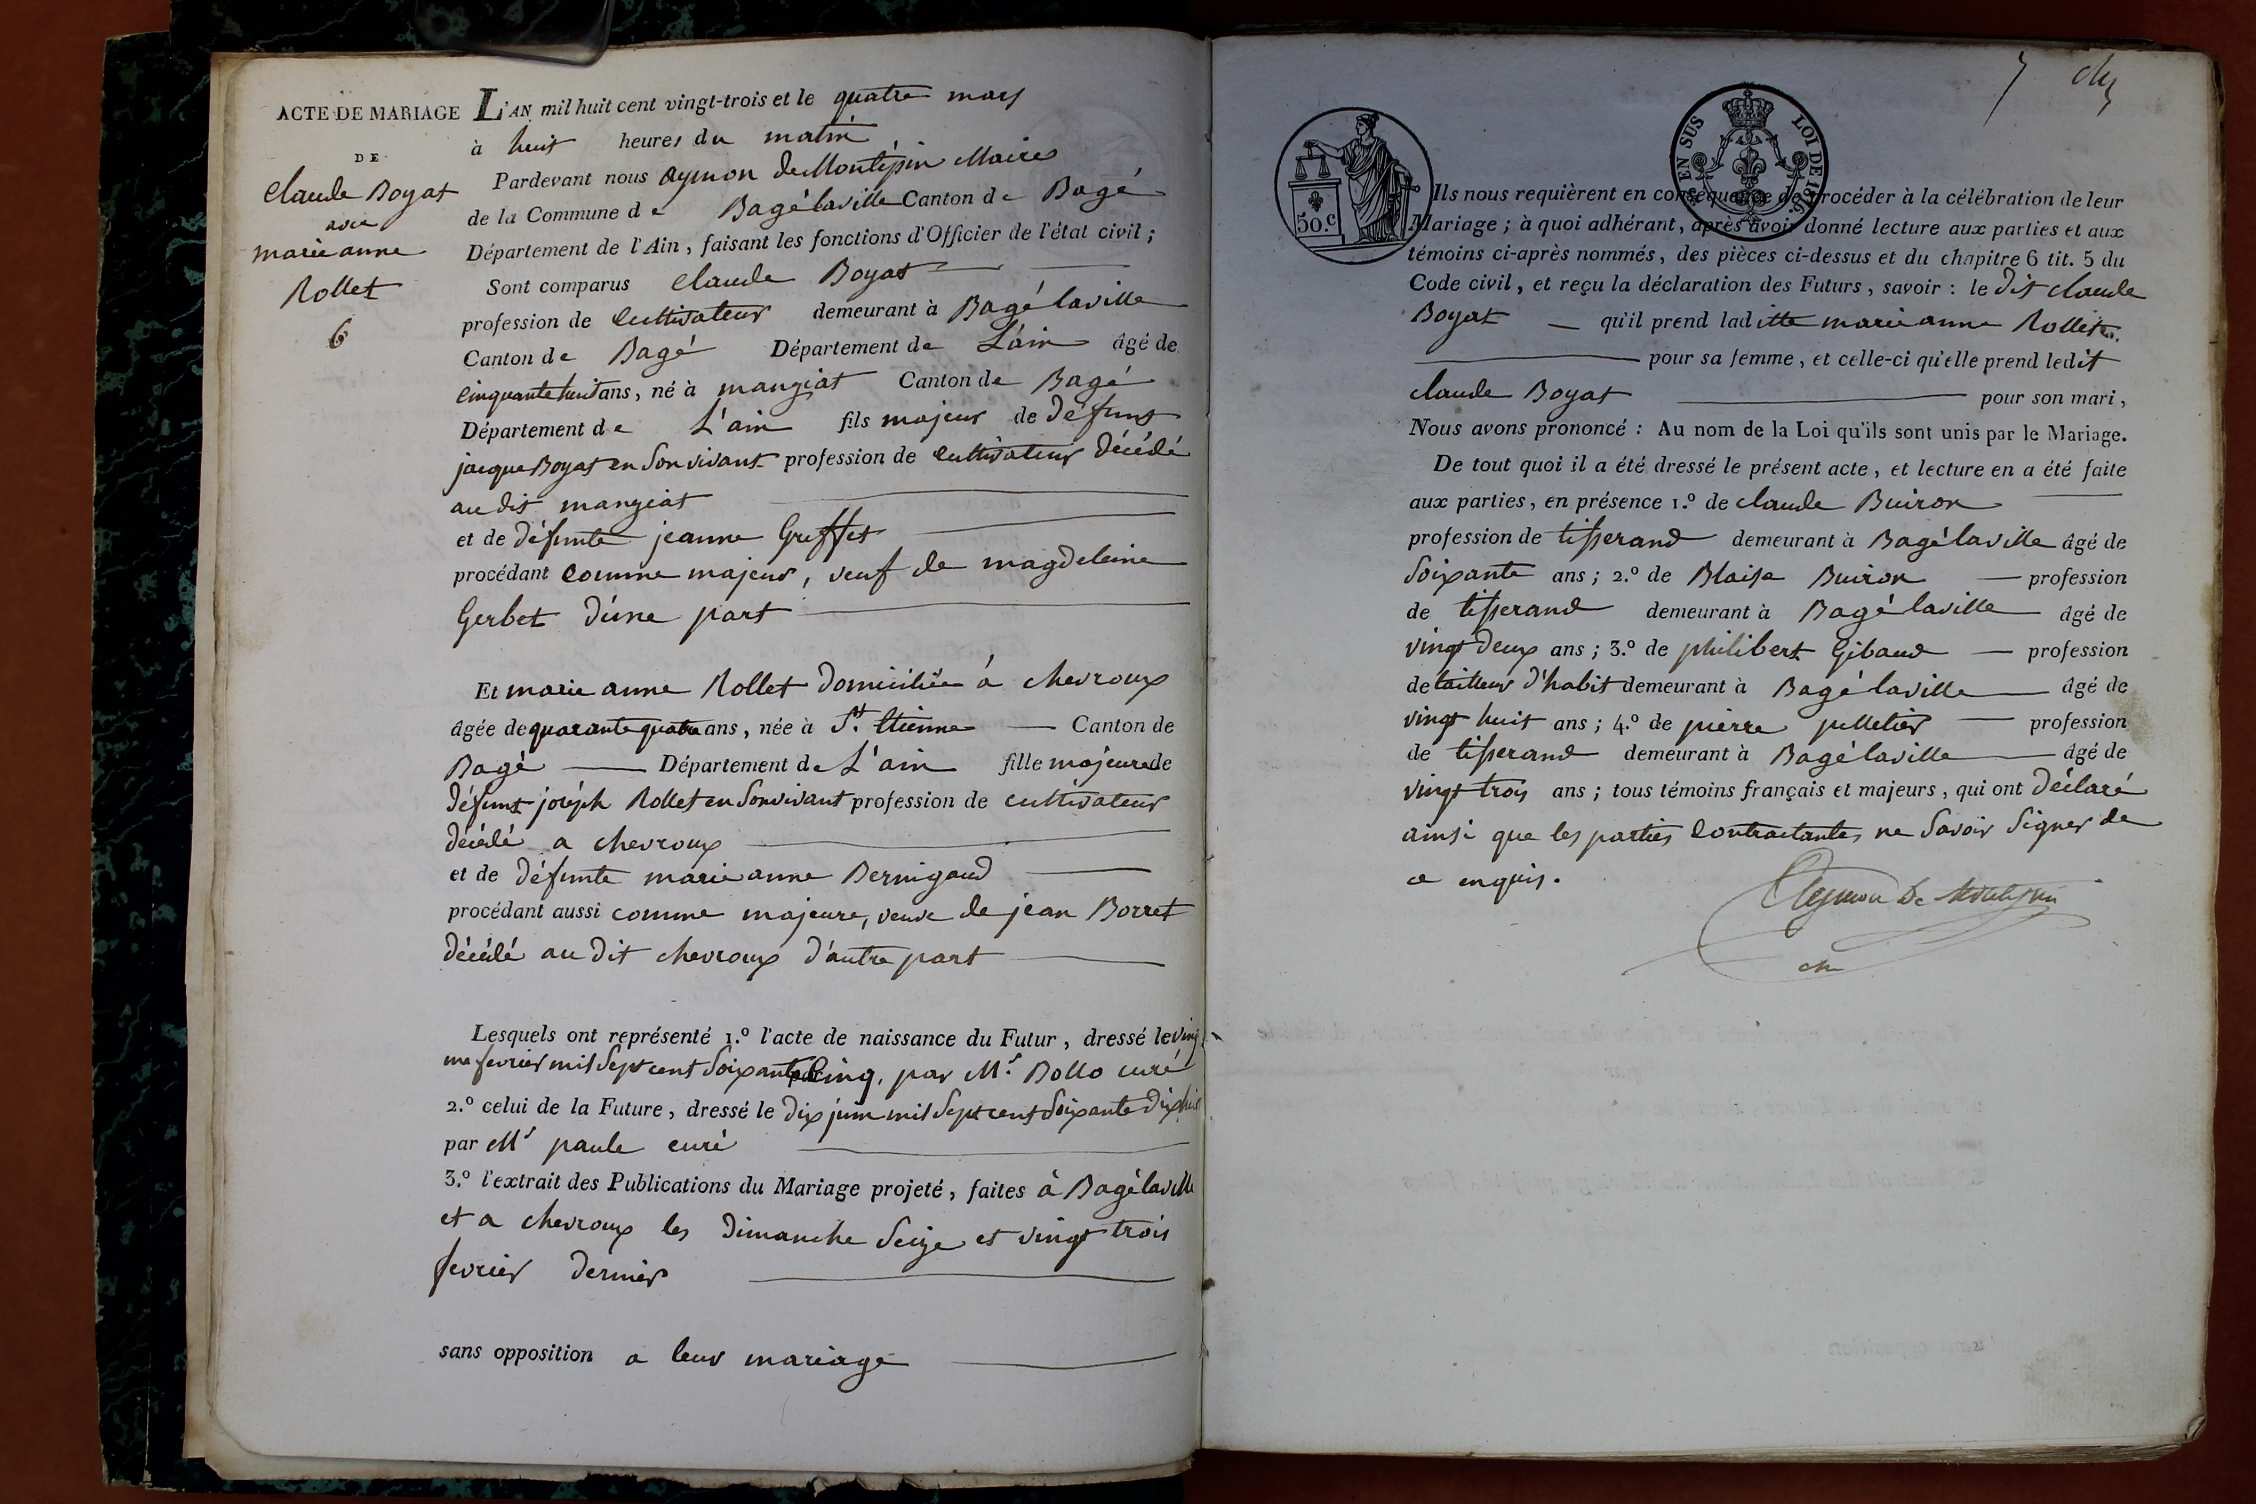 ACTE DE MARIAGE
DE
Claude Boyat
avec
marie anne
Rollet
6
L'AN mil huit cent vingt-trois et le quatre mars
à huit heures du matin
Pardevant nous Aymon de Montépin Maire
de la Commune de Bagé laville Canton de Bagé
Département de l'Ain, faisant les fonctions d'Officier de l'état civil;
Sont comparus Claude Boyat
profession de Cultivateur demeurant à Bagé laville
Canton de Bagé Département de L'ain âgé de
Cinquante huit ans, né à manziat Canton de Bagé
Département de L'ain fils majeur de défunt
jacque Boyat en Son vivant profession de Cultivateur décédé
au dit manziat
et de défunte jeanne Greffet
procédant Comme majeur, veuf de magdeleine
Gerbet d'une part
Et marie anne Rollet domiciliée à chevroux
âgée de quarante quatre ans, née à St. Etienne Canton de
Bagé Département de L'ain fille majeure de
défunt joseph Rollet en Son vivant profession de cultivateur
décédé a chevroux
et de défunte marie anne Bernigaud
procédant aussi comme majeure, veuve de jean Borret
décédé au dit chevroux d'autre part
Lesquels ont représenté 1.º l'acte de naissance du Futur, dressé le ving
me fevrier mil Sept cent Soixante Cinq, par Mr. Bollo curé
2.º celui de la Future, dressé le dix juin mil Sept cent Soixante dix huit
par Mr paule curé
3.º l'extrait des Publications du Mariage projeté, faites à Bagé laville
et a chevroux les dimanche Seize et vingt trois
fevrier dernier
sans opposition a leur mariage
7
EN SUS LOI DE 1816
50.c
Ils nous requièrent en conséquence de procéder à la célébration de leur
Mariage; à quoi adhérant, après avoir donné lecture aux parties et aux
témoins ci-après nommés, des pièces ci-dessus et du chapitre 6 tit. 5 du
Code civil, et reçu la déclaration des Futurs, savoir: le dit claude
Boyat qu'il prend laditte marie anne Rollet
pour sa femme, et celle-ci qu'elle prend ledit
claude Boyat pour son mari,
Nous avons prononcé: Au nom de la Loi qu'ils sont unis par le Mariage.
De tout quoi il a été dressé le présent acte, et lecture en a été faite
aux parties, en présence 1.º de claude Buiron
profession de tisserand demeurant à Bagé laville âgé de
Soixante ans; 2.º de Blaise Buiron profession
de tisserand demeurant à Bagé laville âgé de
vingt deux ans; 3.º de philibert Gibaud profession
de tailleur d'habit demeurant à Bagé laville âgé de
vingt huit ans; 4.º de pierre pelletier profession
de tisserand demeurant à Bagé laville âgé de
vingt trois ans; tous témoins français et majeurs, qui ont déclaré
ainsi que les parties Contractantes ne Savoir Signer de
ce enquis.
Aymon De Montépin